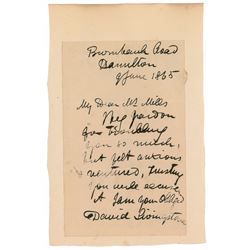 Burnbank Road
Hamilton
9 June 1865
My Dear Mr Mills
Beg pardon
for troubling
you so much,
but felt anxious
& ventured, trusting
you will excuse
it I am yours &c
David Livingstone